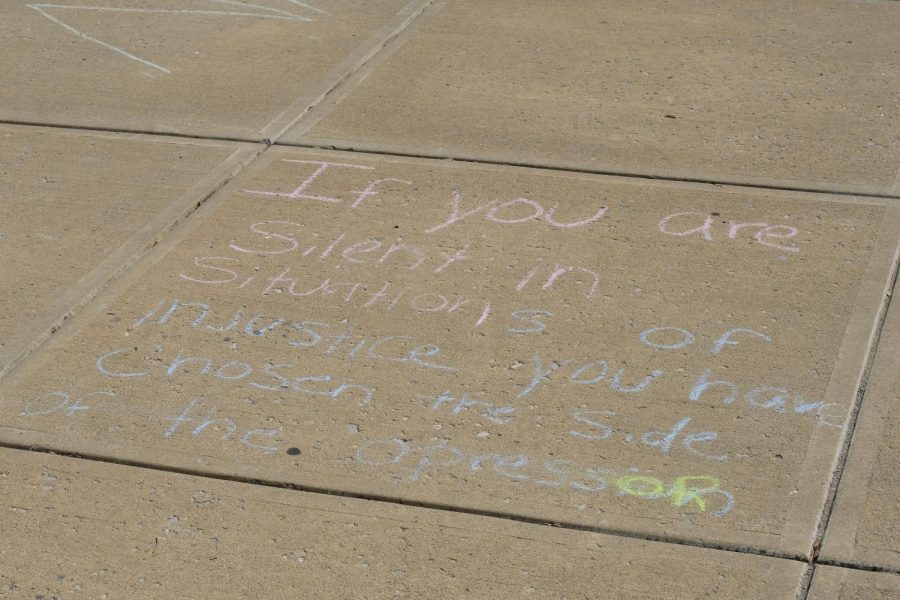 If you are
Silent in
Situations of
injustice you have
Chosen the side
of the OpressOR